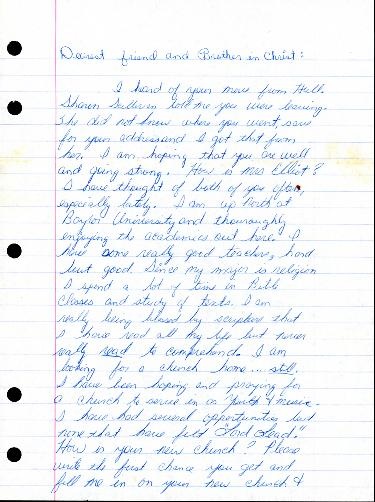 Dearest friend and Brother in Christ:
I heard of your move from Hull.
Sharon Sullivan told me you were leaving.
She did not know where you went, save
for your address and I got that from
her. I am hoping that you are well
and going strong. How is Mrs Elliot?
I have thought of both of you often,
especially lately. I am up North at
Baylor University and thouroughly
enjoying the academics out here. I
have some really good teachers, hard
but good. Since my major is religion
I spend a lot of time in Bible
Classes and study of texts. I am
really being blessed by scripture that
I have read all my life but never
really read to comprehend. I am
looking for a church home... still.
I have been hoping and praying for
a church to serve in as Youth & music.
I have had several opportunities but
none that have felt "Lord Lead."
How is your new church? Please
write the first chance you get and
fill me in on your new church &